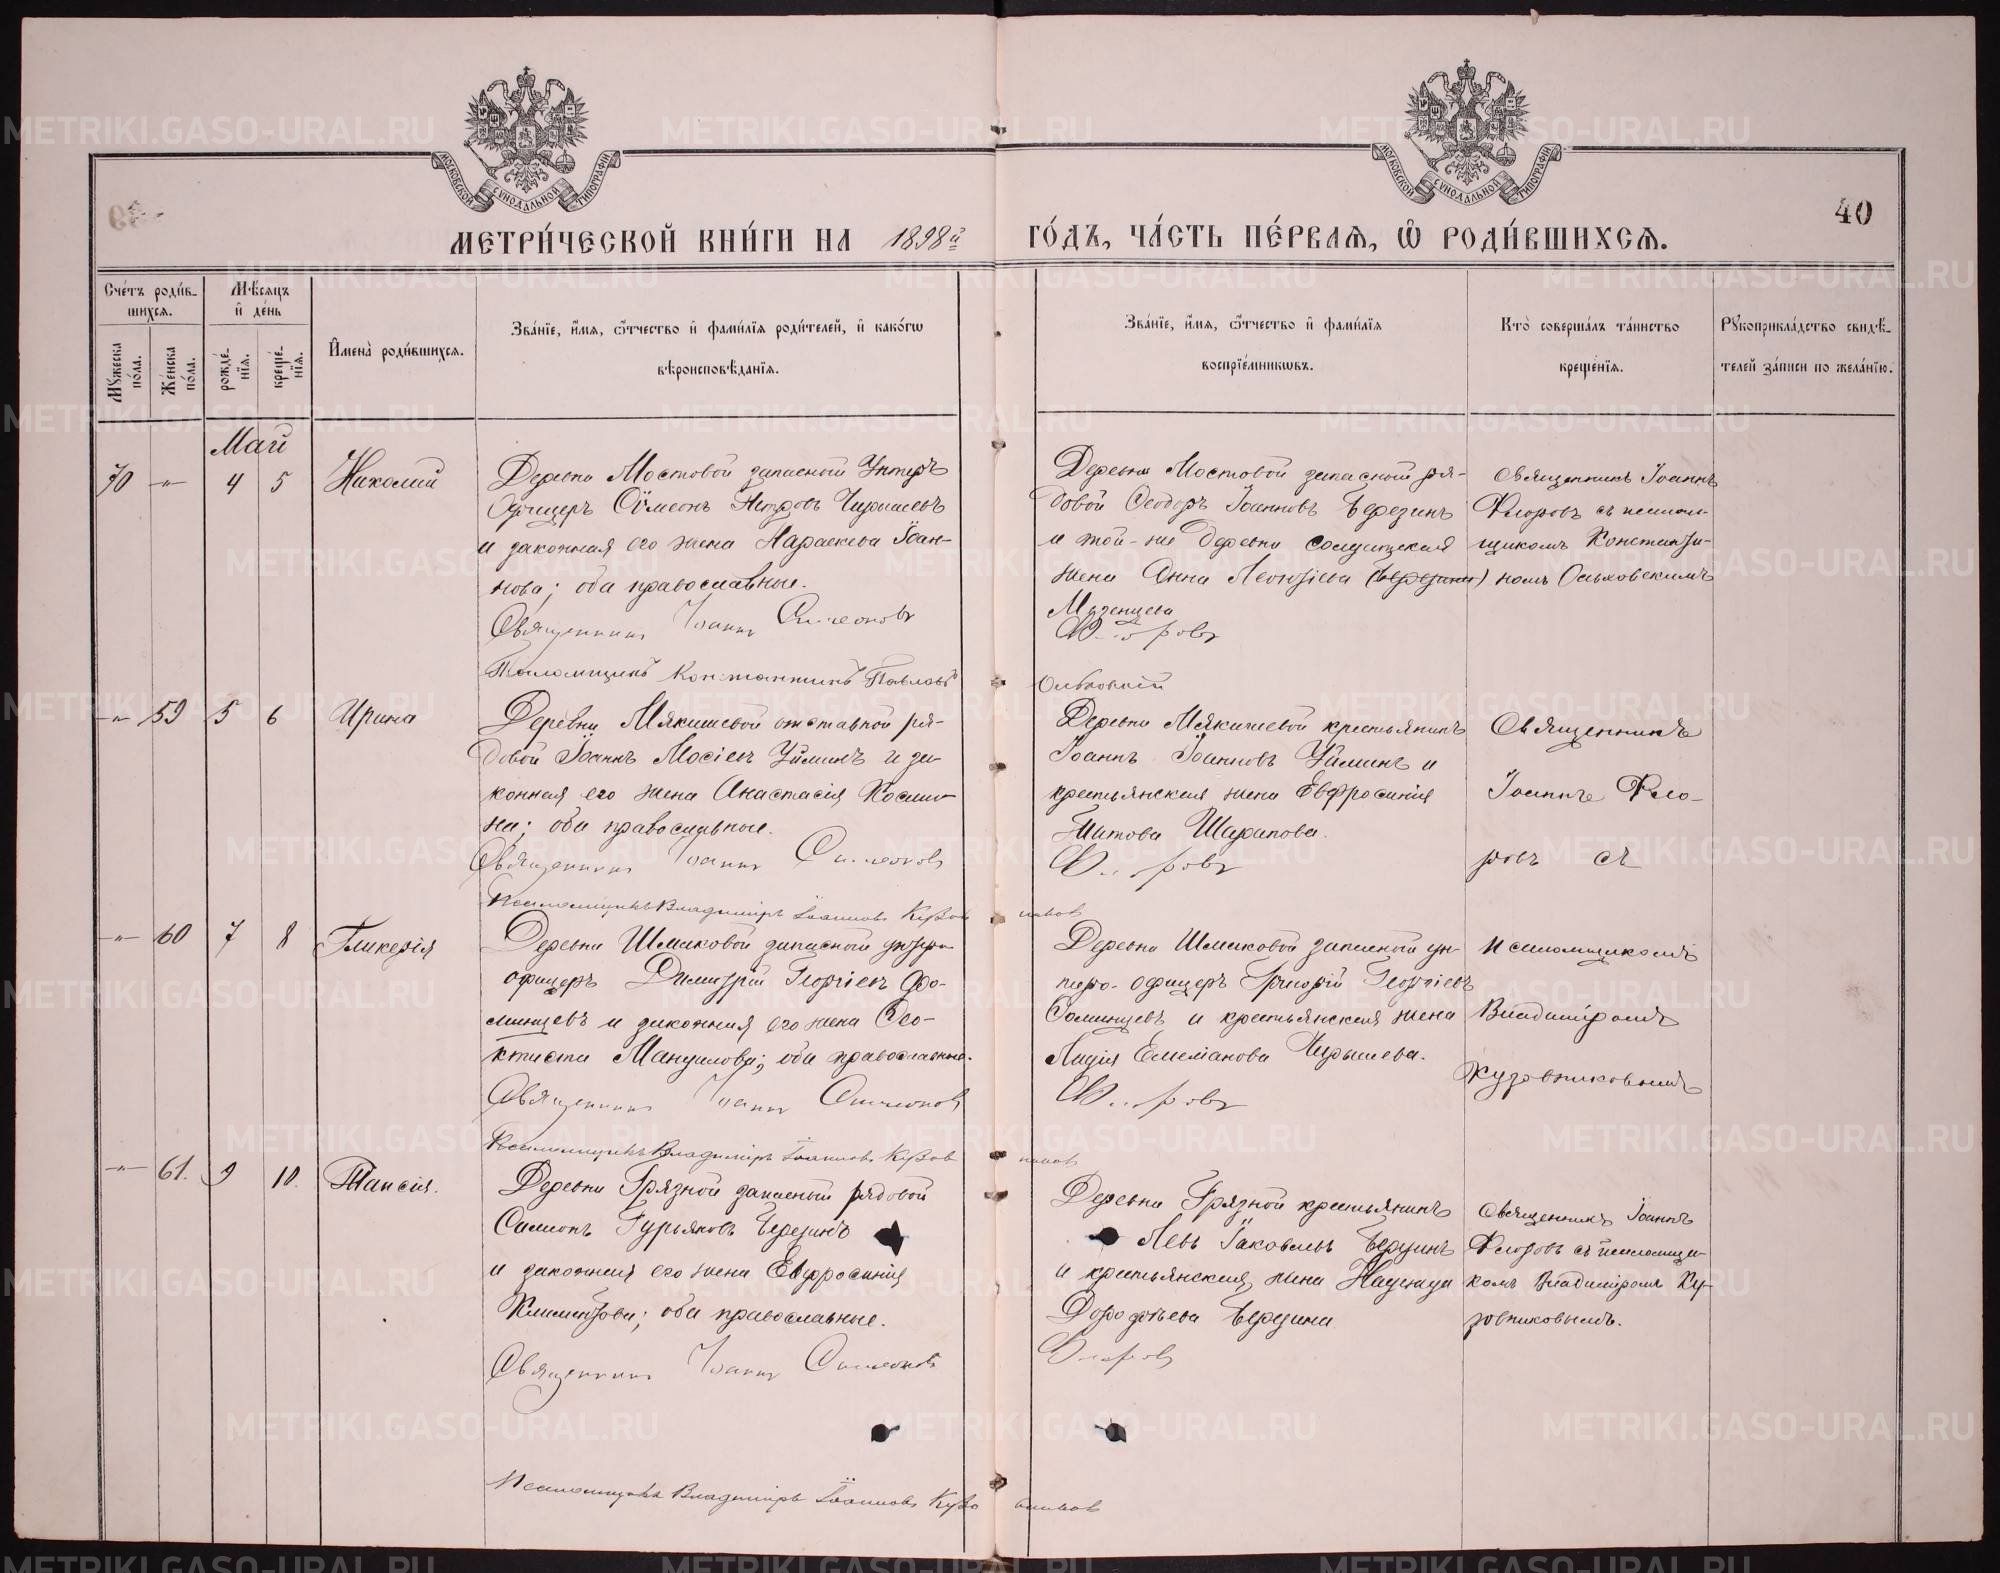 МОСКОВСКОЙ СѴНОДАЛЬНОЙ ТИПОГРАФІИ
МОСКОВСКОЙ СѴНОДАЛЬНОЙ ТИПОГРАФІИ
40
МЕТРИ́ЧЕСКОЙ КНИ́ГИ НА 1898й
ГО́ДЪ, ЧА́СТЬ ПЕ́РВАѦ, Ѽ РОДИ́ВШИХСѦ.
Сче́тъ роди́в-
шихсѧ.
Мѣ́сѧцъ
и҆ де́нь
Мꙋ́жеска по́ла.
Же́нска по́ла.
рожде́-
нїѧ.
креще́-
нїѧ.
И҆мена̀ роди́вшихсѧ.
Зва́нїе, и҆́мѧ, ѻ҆́тчество и҆ фами́лїѧ роди́телей, и҆ како́гѡ
вѣроисповѣ́данїѧ.
Зва́нїе, и҆́мѧ, ѻ҆́тчество и҆ фами́лїѧ
воспрїе́мникѡвъ.
Кто̀ соверша́лъ та́инство
креще́нїѧ.
Рꙋкоприкла́дство свидѣ́-
телей за́писи по жела́нїю.
Май
70 -"- 4 5 Николай
Деревни Мостовой запасный Унтеръ
Офицеръ Сѵмеонъ Петровъ Чирышевъ
и законная его жена Параскева Іоан-
нова; оба православные.
Священникъ Іоаннъ Симеоновъ
Псаломщикъ Константинъ Павловъ
Деревни Мостовой запасный ря-
довой Ѳеодоръ Іоанновъ Березинъ
и той-же деревни солдатская
жена Анна Леонтіева (Березина)
Мазенцева
Флоровъ
Ольховскій
Священникъ Іоаннъ
Флоровъ съ псалом-
щикомъ Константи-
номъ Ольховскимъ
-"- 59 5 6 Ирина
Деревни Мякишевой отставной ря-
довой Іоаннъ Мосіевъ Уйминъ и за-
конная его жена Анастасія Косми-
на; оба православные.
Священникъ Іоаннъ Симеоновъ
Псаломщикъ Владиміръ Іоанновъ Кузов
Деревни Мякишевой крестьянинъ
Іоаннъ Іоанновъ Уйминъ и
крестьянская жена Евфросинія
Титова Шарапова.
Флоровъ
никовъ
Священникъ
Іоаннъ Фло-
ровъ съ
-"- 60 7 8 Гликерія
Деревни Шмаковой запасный унтеръ-
офицеръ Димитрій Георгіевъ Фо-
минцевъ и законная его жена Ѳео-
ктиста Мануилова; оба православные.
Священникъ Іоаннъ Симеоновъ
Псаломщикъ Владиміръ Іоанновъ Кузов
Деревни Шмаковой запасный ун-
теръ-офицеръ Григорій Георгіевъ
Фоминцевъ и крестьянская жена
Лидія Емеліанова Чирышева.
Флоровъ
никовъ
псаломщикомъ
Владиміромъ
Кузовниковымъ
-"- 61. 9 10. Таисія.
Деревни Грязной запасный рядовой
Симеонъ Гурьяновъ Березинъ
и законная его жена Евфросинія
Климентова; оба православные.
Священникъ Іоаннъ Симеоновъ
Псаломщикъ Владиміръ Іоанновъ Кузо
Деревни Грязной крестьянинъ
Левъ Іаковлевъ Березинъ
и крестьянская жена Надежда
Дорофеева Березина
Флоровъ
вниковъ
Священникъ Іоаннъ
Флоровъ съ псаломщи-
комъ Владиміромъ Ку-
зовниковымъ.
METRIKI.GASO-URAL.RU